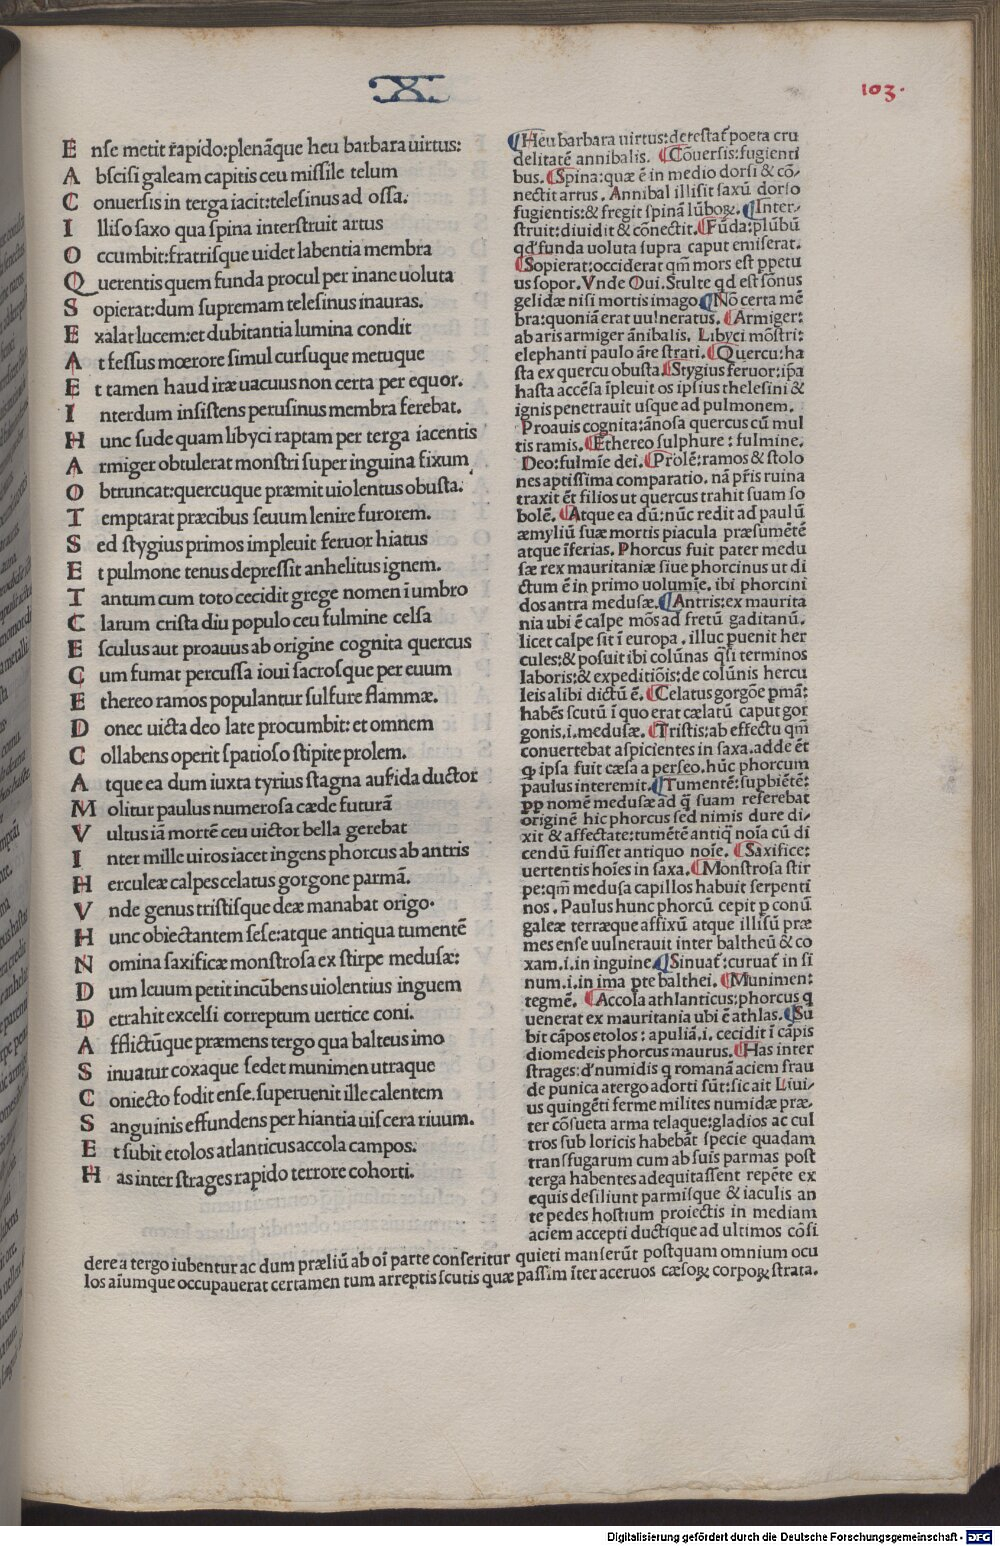 X
103.
E nse metit rapido:plenãque heu barbara uirtus:
A bscisi galeam capitis ceu missile telum
C onuersis in terga iacit:telesinus ad ossa.
I lliso saxo qua spina interstruit artus
O ccumbit:fratrisque uidet labentia membra
Q uerentis quem funda procul per inane uoluta
S opierat:dum supremam telesinus inauras.
E xalat lucem:et dubitantia lumina condit
A t fessus mœrore simul cursuque metuque
E t tamen haud iræ uacuus non certa per equor.
I nterdum insistens perusinus membra ferebat.
H unc sude quam libyci raptam per terga iacentis
A rmiger obtulerat monstri super inguina fixum
O btruncat:quercuque præmit uiolentus obusta.
T emptarat præcibus seuum lenire furorem.
S ed stygius primos impleuit feruor hiatus
E t pulmone tenus depressit anhelitus ignem.
T antum cum toto cecidit grege nomen ĩ umbro
C larum crista diu populo ceu fulmine celsa
E sculus aut proauus ab origine cognita quercus
C um fumat percussa ioui sacrosque per euum
E thereo ramos populantur sulfure flammæ.
D onec uicta deo late procumbit: et omnem
C ollabens operit spatioso stipite prolem.
A tque ea dum iuxta tyrius stagna aufida ductor
M olitur paulus numerosa cæde futurã
V ultus iã mortẽ ceu uictor bella gerebat
I nter mille uiros iacet ingens phorcus ab antris
H erculeæ calpes celatus gorgone parmã.
V nde genus tristisque deæ manabat origo.
H unc obiectantem sese:atque antiqua tumentẽ
N omina saxificæ monstrosa ex stirpe medusæ:
D um leuum petit incũbens uiolentius inguem
D etrahit excelsi correptum uertice coni.
A fflictũque præmens tergo qua balteus imo
S inuatur coxaque sedet munimen utraque
C oniecto fodit ense. superuenit ille calentem
S anguinis effundens per hiantia uiscera riuum.
E t subit etolos atlanticus accola campos.
H as inter strages rapido terrore cohorti.
¶Heu barbara uirtus:detestat̃ poeta cru
delitatẽ annibalis. ¶Cõuersis:fugienti
bus.¶Spina:quæ ẽ in medio dorsi & cõ/
nectit artus. Annibal illisit saxũ dorso
fugientis:& fregit spinã lũboꝝ.¶Inter/
struit:diuidit & cõnectit.¶Fũda:plũbũ
qd' funda uoluta supra caput emiserat.
¶Sopierat:occiderat qm̃ mors est ppetu
us sopor. Vnde Oui. Stulte qd est sonus
gelidæ nisi mortis imago ¶Nõ certa mẽ
bra:quoniã erat uulneratus. ¶Armiger:
ab aris armiger ãnibalis. Libyci mõstri:
elephanti paulo ãre strati.¶Quercu:ha
sta ex quercu obusta.¶Stygius feruor:ip̃a
hasta accẽsa ĩpleuit os ipsius thelesini &
ignis penetrauit usque ad pulmonem.
Proauis cognita:ãnosa quercus cũ mul
tis ramis. ¶Ethereo sulphure: fulmine.
Deo:fulmĩe dei. ¶Prolẽ:ramos & stolo
nes aptissima comparatio. nã p̃ris ruina
traxit ẽt filios ut quercus trahit suam so
bolẽ. ¶Atque ea dũ:nũc redit ad paulũ
æmyliũ suæ mortis piacula præsumẽtẽ
atque ĩferias. Phorcus fuit pater medu
sæ rex mauritaniæ siue phorcinus ut di
ctum ẽ in primo uolumĩe. ibi phorcini
dos antra medusæ.¶Antris:ex maurita
nia ubi ẽ calpe mõs ad fretũ gaditanũ.
licet calpe sit ĩ europa. illuc puenit her
cules:& posuit ibi colũnas q̃si terminos
laboris:& expeditiõis:de colũnis hercu
leis alibi dictũ ẽ. ¶Celatus gorgõe pmã:
habẽs scutũ ĩ quo erat cælatũ caput gor
gonis.i.medusæ. ¶Tristis:ab effectu qm̃
conuertebat aspicientes in saxa.adde ẽt
ꝙ ipsa fuit cæsa a perseo.hũc phorcum
paulus interemit.¶Tumentẽ:supbiẽtẽ:
pp nomẽ medusæ ad q̃ suam referebat
originẽ hic phorcus sed nimis dure di/
xit & affectate:tumẽtẽ antiq̃ noĩa cũ di
cendũ fuisset antiquo noĩe. ¶Saxificæ:
uertentis hoĩes in saxa. ¶Monstrosa stir
pe:qm̃ medusa capillos habuit serpenti
nos. Paulus hunc phorcũ cepit p conũ
galeæ terræque affixũ atque illisũ præ
mes ense uulnerauit inter baltheũ & co
xam.i.in inguine ¶Sinuat̃:curuat̃ in si
num.i.in ima pte balthei. ¶Munimen:
tegmẽ. ¶Accola athlanticus:phorcus q
uenerat ex mauritania ubi ẽ athlas. ¶Su
bit cãpos etolos: apuliã.i. cecidit ĩ cãpis
diomedeis phorcus maurus.¶Has inter
strages:d' numidis q romanã aciem frau
de punica atergo adorti sũt:sic ait Liui/
us quingẽti ferme milites numidæ præ/
ter cõsueta arma telaque:gladios ac cul
tros sub loricis habebãt specie quadam
transfugarum cum ab suis parmas post
terga habentes adequitassent repẽte ex
equis desiliunt parmisque & iaculis an
te pedes hostium proiectis in mediam
aciem accepti ductique ad ultimos cõsi
dere a tergo iubentur ac dum præliũ ab oĩ parte conseritur quieti manserũt postquam omnium ocu
los aĩumque occupauerat certamen tum arreptis scutis quæ passim ĩter aceruos cæsoꝝ corpoꝝ strata.
Digitalisierung gefördert durch die Deutsche Forschungsgemeinschaft - DFG